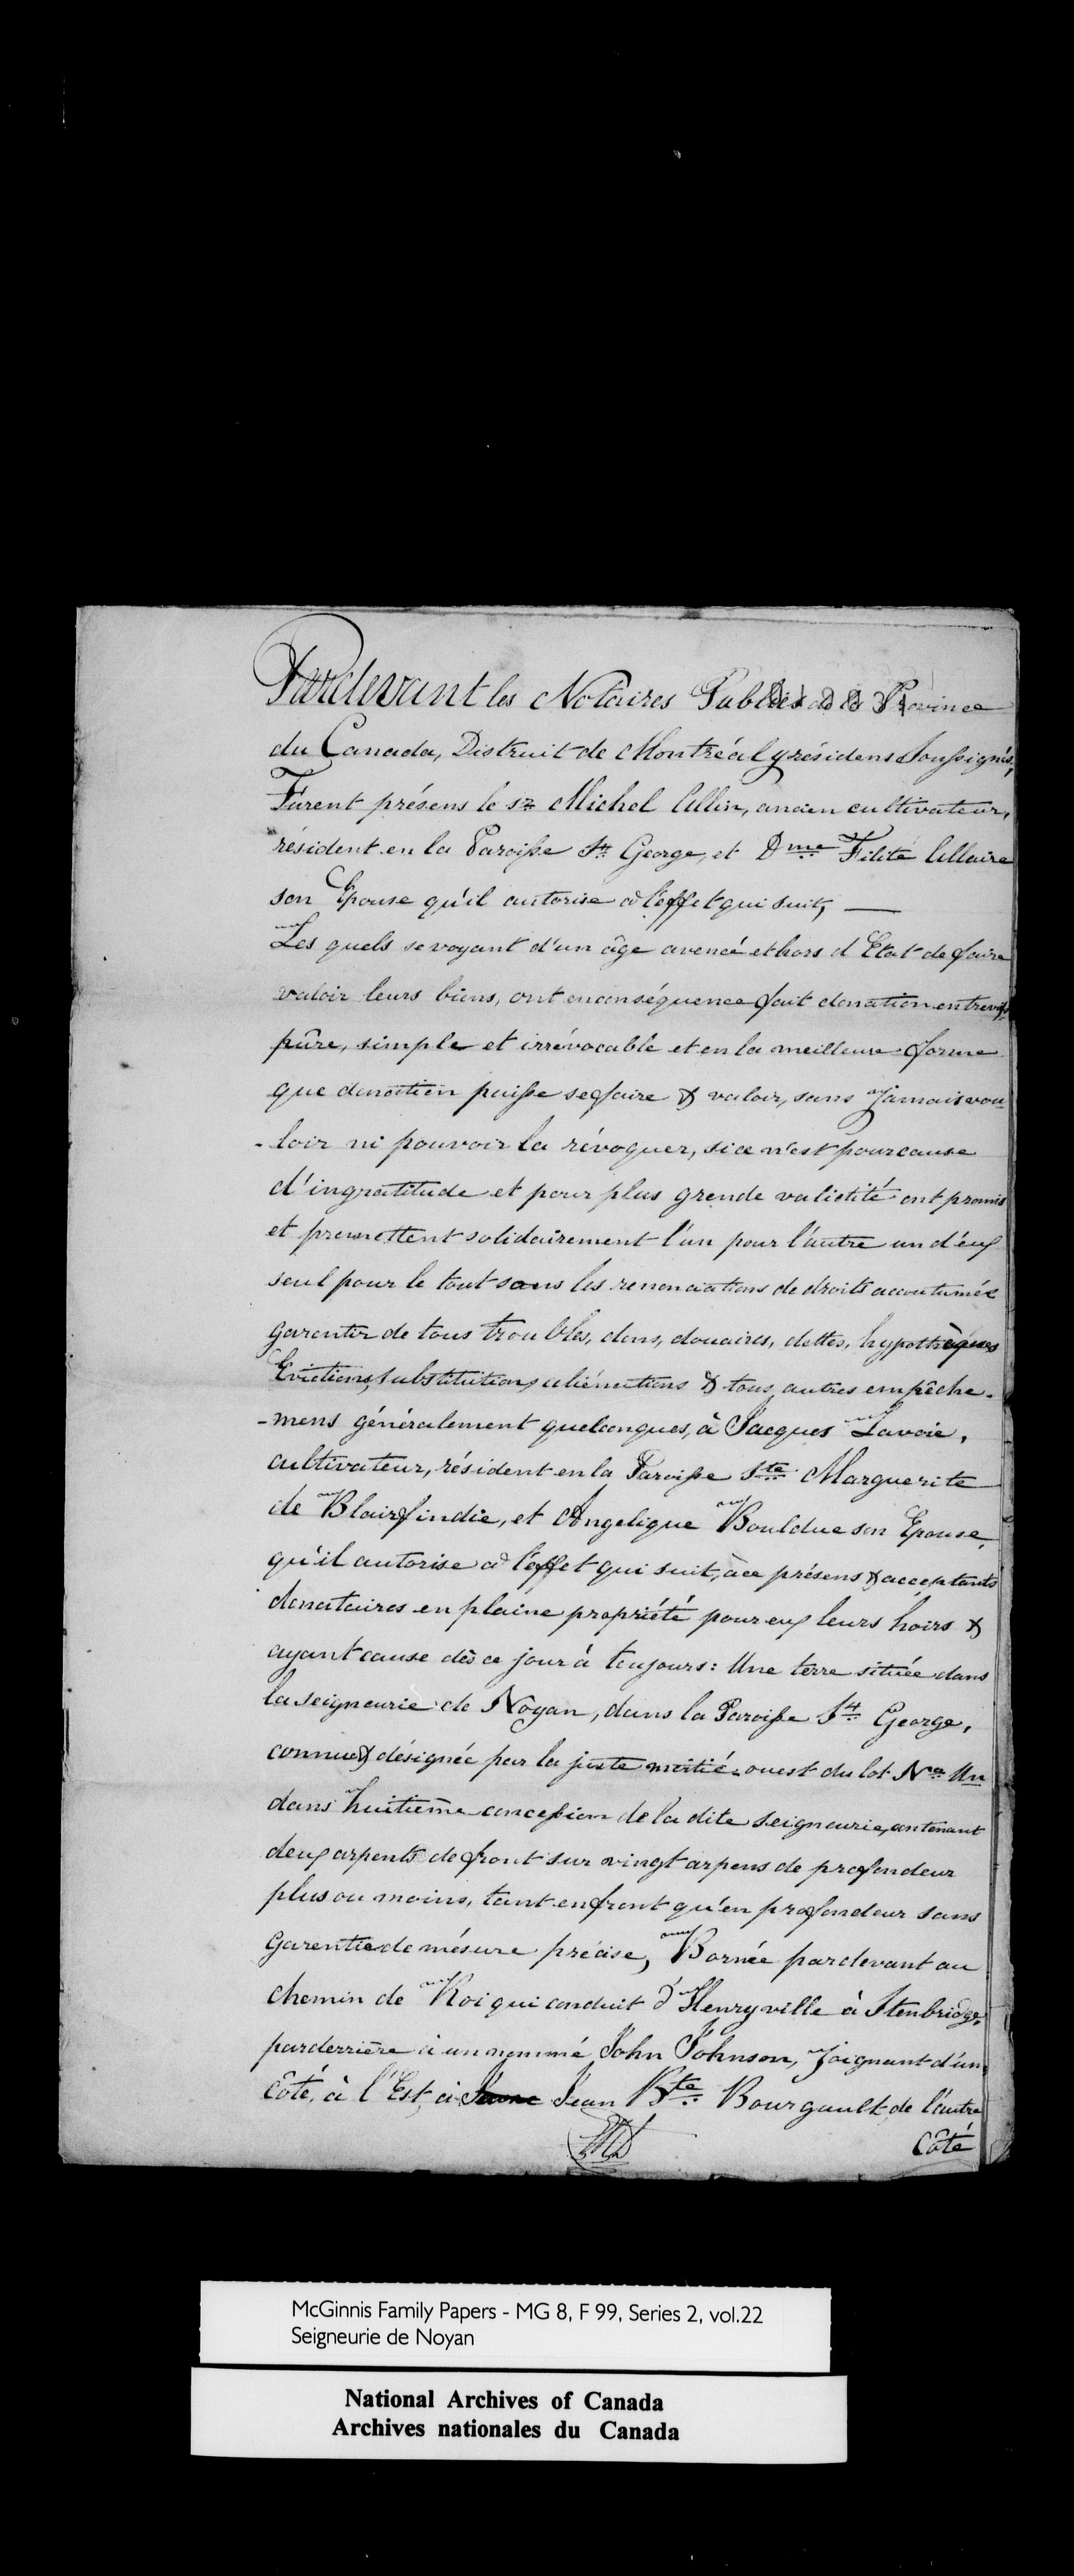 Pardevant les Notaires Publics de la Province
du Canada, District de Montréal y résidens Soussignés,
Furent présens le Sr. Michel Allin, ancien cultivateur,
résident en la Paroisse St. George, et Dme. Filité Allaire
son Epouse qu'il autorise à l'effet qui suit, —
Les quels se voyant d'un âge avencé et hors d'Etat de faire
valoir leurs biens, ont en conséquence fait donation entrevifs
pûre, simple et irrévocable et en la meilleure forme
que donation puisse se faire & valoir, sans Jamais vou-
-loir ni pouvoir la révoquer, si ce n'est pour cause
d'ingratitude et pour plus grende validité ont promis
et promettent solidairement l'un pour l'autre un d'eux
seul pour le tout sous les renonciations de droits accoutumés
garentir de tous troubles, dons, douaires, dettes, hypothèques
Evictions, substitutions aliénations & tous autres empêche-
-mens généralement quelconques, à Jacques Lavoie,
cultivateur, résident en la Paroisse Ste. Marguerite
de Blairfindie, et Angelique Boulduc son Epouse,
qu'il autorise à l'effet qui suit, à ce présens & acceptants
donataires en plaine propriété pour eux leurs hoirs &
ayant cause dès ce jour à toujours: Une terre située dans
la seigneurie de Noyan, dans la Paroisse St. George,
connue & désignée par la juste moitié ouest du lot No. Un
dans huitième concession de la dite seigneurie, contenant
deux arpents de front sur vingt arpens de profondeur
plus ou moins, tant en front qu'en profondeur sans
garentie de mésure précise, Bornée pardevant au
chemin de Roi qui conduit d'Henryville à Stenbridge,
parderrière à un nommé John Johnson, Joignant d'un
Côté, à l'Est, à Jean Bte. Bourgault de l'autre
Côté
McGinnis Family Papers - MG 8, F 99, Series 2, vol.22
Seigneurie de Noyan
National Archives of Canada
Archives nationales du Canada